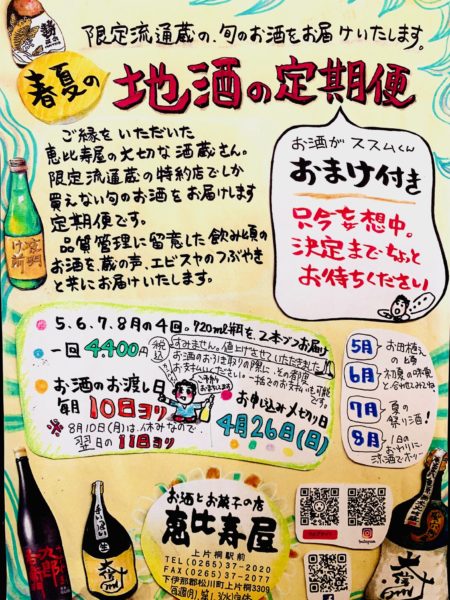 限定流通蔵の、旬のお酒をお届けいたします。
春夏の
地酒の定期便
ご縁をいただいた
恵比寿屋の大切な酒蔵さん。
限定流通蔵の特約店でしか
買えない旬のお酒をお届けします
定期便です。
品質管理に留意した飲み頃の
お酒を、蔵の声、エビスヤのつぶやき
と共にお届けいたします。
お酒がススムくん
おまけ付き
只今妄想中。
決定までちょっと
お待ちください
5、6、7、8月の4回。720ml瓶を2本づつお届け
一回4400円
税込
すみません。値上げさせていただきました
お酒のお引き取りの際に、その都度
お支払いください。一括でのお支払いも可能
です。
お酒のお渡し日
毎月10日ヨリ
※8月10日(月)は休みなので
翌日の11日ヨリ
お申し込み〆切り日
4月26日(日)
5月
お田植え
の頃
6月
初夏の味覚
と合わせてみてね
7月
夏の
祭り酒!
8月
1日の
おわりに
涼酒でホッ
お酒とお菓子の店
恵比寿屋
上片桐駅前
TEL(0265)37-2020
FAX(0265)37-2077
下伊那郡松川町上片桐3309
Instagram